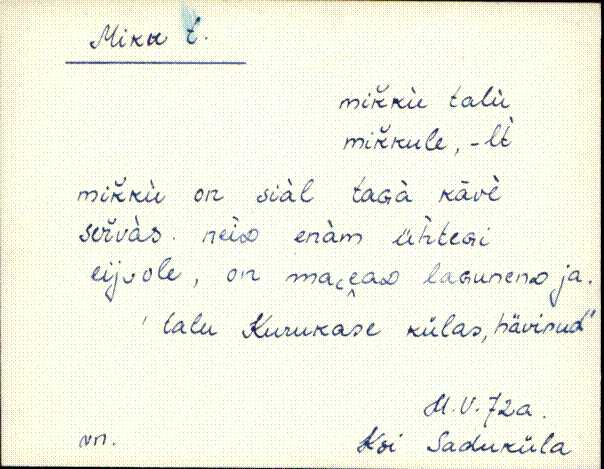 Miku t.
mikkù talù
mikkule, -lt̀
mikkù on siàl tagà kāvè
servàs. neiD enàm ühtegi
eijole, on ma eaD lagunenD ja.
' talu Kurukase külas, hävinud"
M.V.72a.
vn. Ksi Saduküla